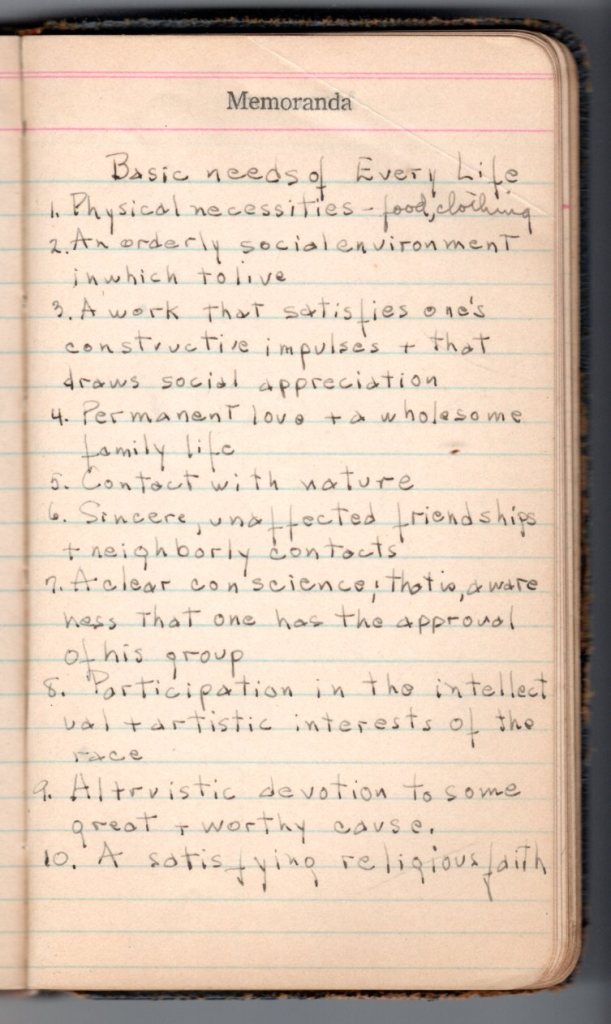 Memoranda
Basic needs of Every Life
1. Physical necessities - food, clothing
2. An orderly social environment
in which to live
3. A work that satisfies one's
constructive impulses + that
draws social appreciation
4. Permanent love + a wholesome
family life
5. Contact with nature
6. Sincere, unaffected friendships
+ neighborly contacts
7. A clear conscience; that is, aware
ness that one has the approval
of his group
8. Participation in the intellect
ual + artistic interests of the
race
9. Altruistic devotion to some
great + worthy cause.
10. A satisfying religious faith